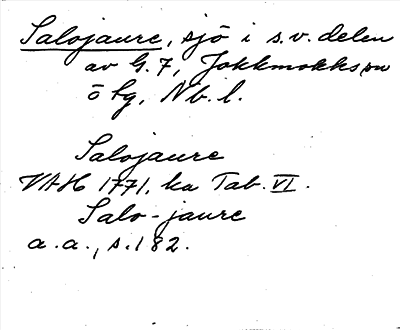 Salojaure, sjö i s.v. delen
av G. 7, Jokkmokks sn
ö lg, Nb. l.
Salojaure
VAH 1771, ka Tab. VI.
Salo-jaure
a.a., s. 182.